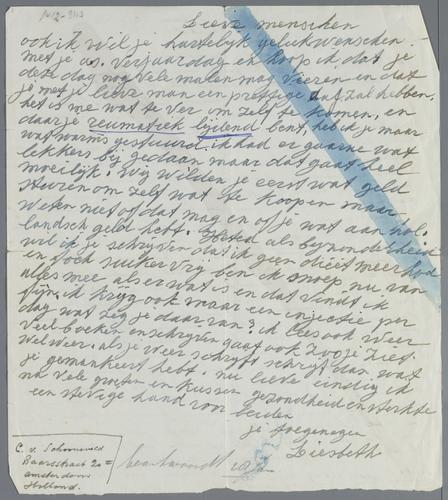 Lieve menschen
ook ik wil je hartelijk gelukwenschen
met je as. verjaardag en hoop ik dat je
deze dag nog vele malen mag vieren en dat
je met je lieve man een prettige dag zal hebben.
het is me wat te ver om zelf te komen, en
daar je reumatiek lijdend bent, heb ik je maar
wat warms gestuurd. ik had er gaarne wat
lekkers bij gedaan maar dat gaat heel
moeilijk. Wij wilden je eerst wat geld
sturen om zelf wat te koopen maar
weten niet of dat mag en of je wat aan hol-
landsch geld hebt. als byzonderheid
wil ik je schryven dat ik geen diëet meer
en ook suikervry ben ik snoep nu van
alles mee als er wat is en dat vindt ik
fijn. ik kryg ook maar een injectie per
dag wat zeg je daar van? ik lees ook weer
veel boeken en schryven gaat ook zooje ziet
wel weer. als je weer schryft schryf dan wat
je gemankeert hebt. nu lieve eindig ik
na vele groeten en kussen gezondheid en sterkte
en stevige hand van beiden
je toegenegen
Liesbeth
C. v. Schooneveld
Baarsstraat 2a
amsterdam
Holland.